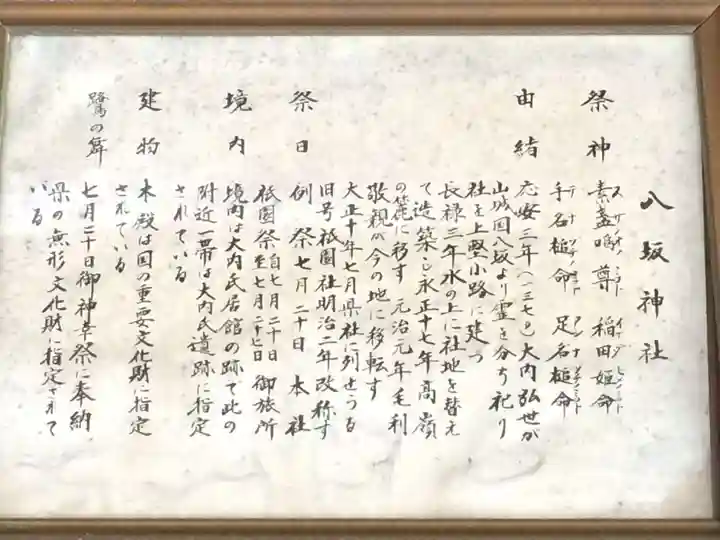 八坂神社
祭神 素盞嗚尊 稲田姫命
スサノオノミコト イナダヒメノミコト
手名槌命 足名槌命
テナヅチノミコト アシナヅチノミコト
由緒 応安三年(一三七〇)大内弘世が
山城国八坂より霊を分ち祀り
社を上竪小路に建つ
長禄三年水の上に社地を替え
て造築し永正十七年高嶺
の麓に移す 元治元年毛利
敬親が今の地に移転す
大正十年七月県社に列せらる
旧号祇園社明治二年改称す
祭日 例祭七月二十日 本社
祇園祭自七月二十日至七月二十七日 御旅所
境内 境内は大内氏居館の跡で此の
附近一帯は大内氏遺跡に指定
されている
建物 本殿は国の重要文化財に指定
されている
鷺の舞 七月二十日御神幸祭に奉納
県の無形文化財に指定されて
いる